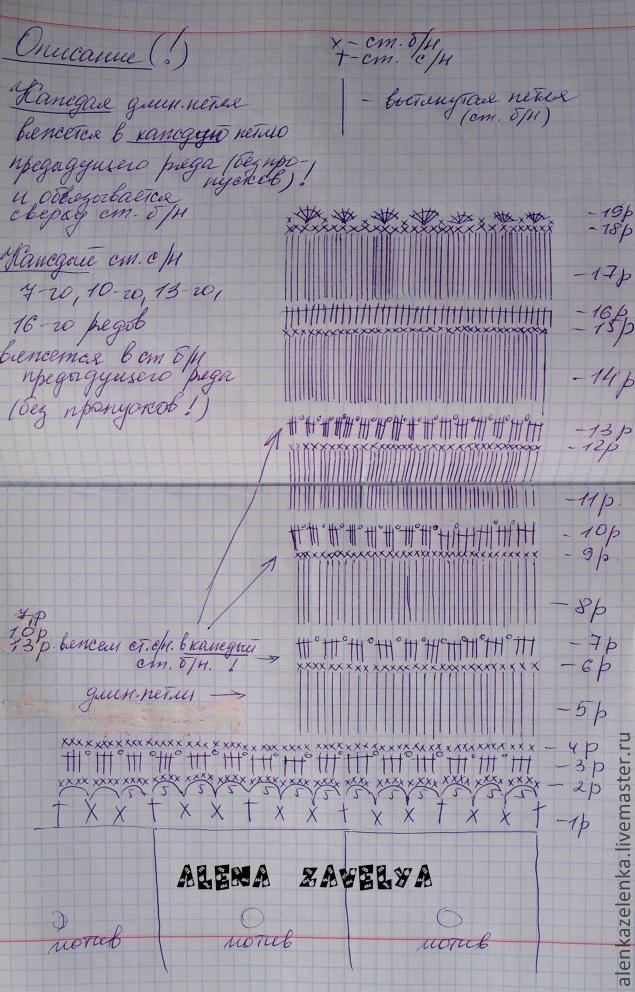 Описание (!)
х - ст. б/н
† - ст. с/н
| - вытянутая петля
(ст. б/н)
Каждая длин. петля
вяжется в каждую петлю
предыдущего ряда (без про-
пусков)!
и обвязывается
сверху ст. б/н
Каждый ст. с/н
7-го, 10-го, 13-го,
16-го рядов
вяжется в ст б/н
предыдущего ряда
(без пропусков!)
-19р
-18р
-17р
-16р
-15р
-14р
-13р
-12р
-11р
-10р
-9р
-8р
-7р
-6р
-5р
-4р
-3р
-2р
-1р
7р
10р
13р вяжем ст. с/н. в каждый
ст. б/н. !
длин. петли
5 5 5 5 5 5 5 5 5 5 5 5 5 5 5
ALENA ZAVELYA
мотив мотив мотив
alenkazelenka.livemaster.ru